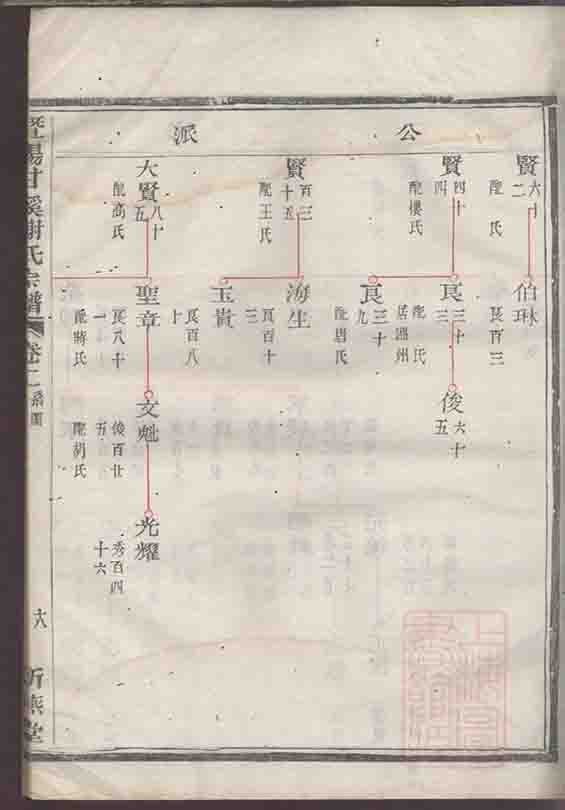 公派
賢
六十
二
配 氏
賢
四十
四
配樓氏
賢
百三
十五
配王氏
大賢
八十
五
配高氏
伯琳
良百三
良
三十
三
配 氏
居溫州
良
三十
九
配唐氏
海生
良百十
三
玉貴
良百八
十
聖章
良八十
一
配蔣氏
俊
六十
五
文魁
俊百廿
五
配胡氏
光耀
秀百四
十六
暨陽甘溪謝氏宗譜
卷二
系圖
上海圖書館藏